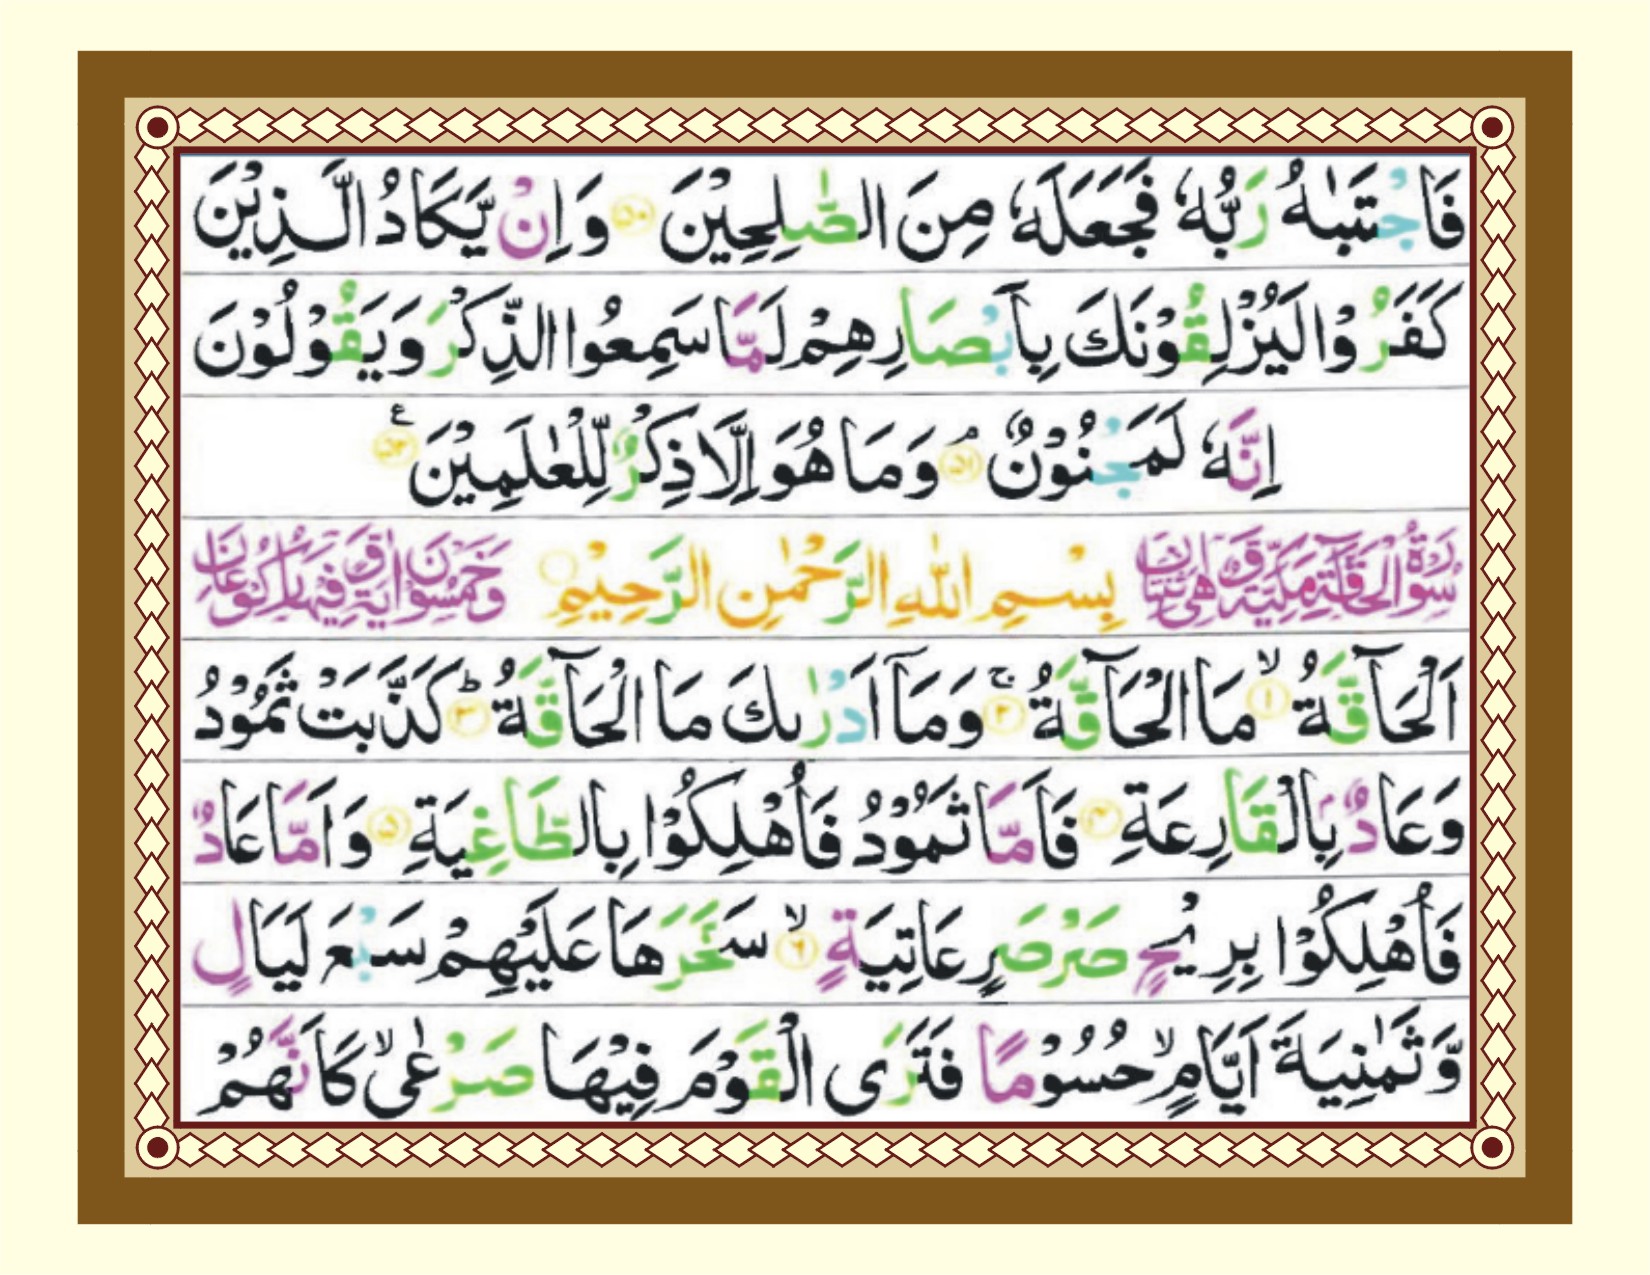 فَاجْتَبٰىهُ رَبُّهٗ فَجَعَلَهٗ مِنَ الصّٰلِحِيْنَ ۵۰ وَاِنْ يَّكَادُ الَّذِيْنَ
كَفَرُوْا لَيُزْلِقُوْنَكَ بِاَبْصَارِهِمْ لَمَّا سَمِعُوا الذِّكْرَ وَيَقُوْلُوْنَ
اِنَّهٗ لَمَجْنُوْنٌ ۘ ۵۱ وَمَا هُوَ اِلَّا ذِكْرٌ لِّلْعٰلَمِيْنَ ۵۲ ع
سُوْرَةُ الْحَاقَّةِ مَكِّيَّةٌ وَّهِيَ اثْنَتَانِ بِسْمِ اللّٰهِ الرَّحْمٰنِ الرَّحِيْمِ وَخَمْسُوْنَ اٰيَةً وَّفِيْهَا رُكُوْعَانِ
اَلْحَآقَّةُ ۙ ۱ مَا الْحَآقَّةُ ۚ ۲ وَمَآ اَدْرٰىكَ مَا الْحَآقَّةُ ؕ ۳ كَذَّبَتْ ثَمُوْدُ
وَعَادٌۢ بِالْقَارِعَةِ ۴ فَاَمَّا ثَمُوْدُ فَاُهْلِكُوْا بِالطَّاغِيَةِ ۵ وَاَمَّا عَادٌ
فَاُهْلِكُوْا بِرِيْحٍ صَرْصَرٍ عَاتِيَةٍ ۙ ۶ سَخَّرَهَا عَلَيْهِمْ سَبْعَ لَيَالٍ
وَّثَمٰنِيَةَ اَيَّامٍ ۙ حُسُوْمًا فَتَرَى الْقَوْمَ فِيْهَا صَرْعٰى ۙ كَاَنَّهُمْ